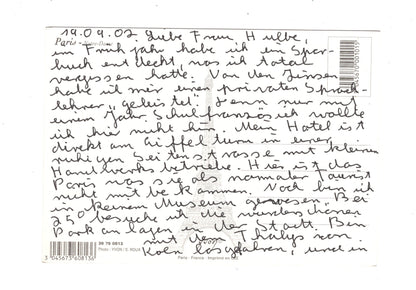 19.09.02. Liebe Frau Hülbe,
Paris -
im Frühjahr habe ich ein Spar-
buch entdeckt, was ich total
vergessen hatte. Von den Zinsen
habe ich mir einen privaten Sprach-
lehrer „geleistet“. Denn nur mit
einem Jahr Schulfranzösisch wollte
ich hier nicht hin. Mein Hotel ist
direkt am Eiffelturm in einer
ruhigen Seitenstrasse mit kleinen
Handwerksbetrieben. Hier ist das
Paris was sie als normaler Tourist
nicht mitbekommen. Noch bin ich
in keinem Museum gewesen. Bei
25° besuche ich die wunderschönen
Parkanlagen in der Stadt. Bin
mit dem Thalys von
Köln losgefahren, und in
3 045673 608136